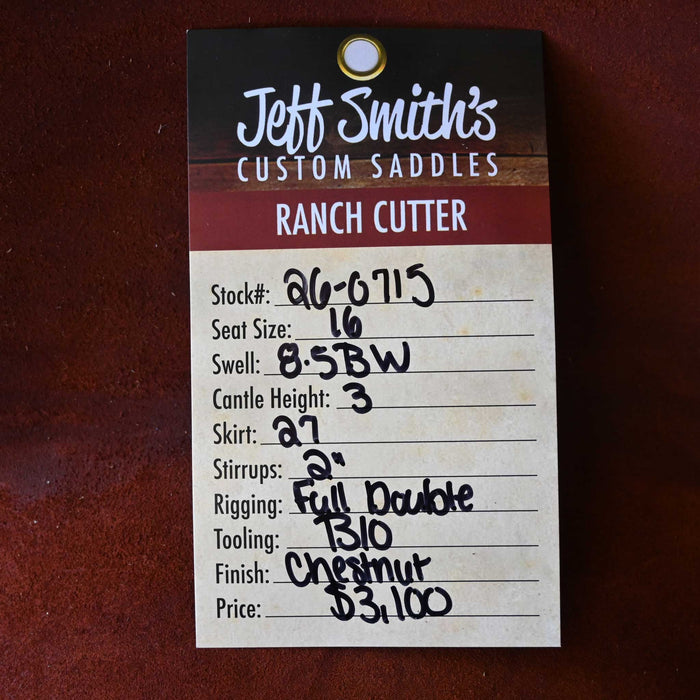 Jeff Smith's
CUSTOM SADDLES
RANCH CUTTER
Stock#: 26-0715
Seat Size: 16
Swell: 8.5BW
Cantle Height: 3
Skirt: 27
Stirrups: 2"
Rigging: Full Double
Tooling: T310
Finish: Chestnut
Price: $3,100